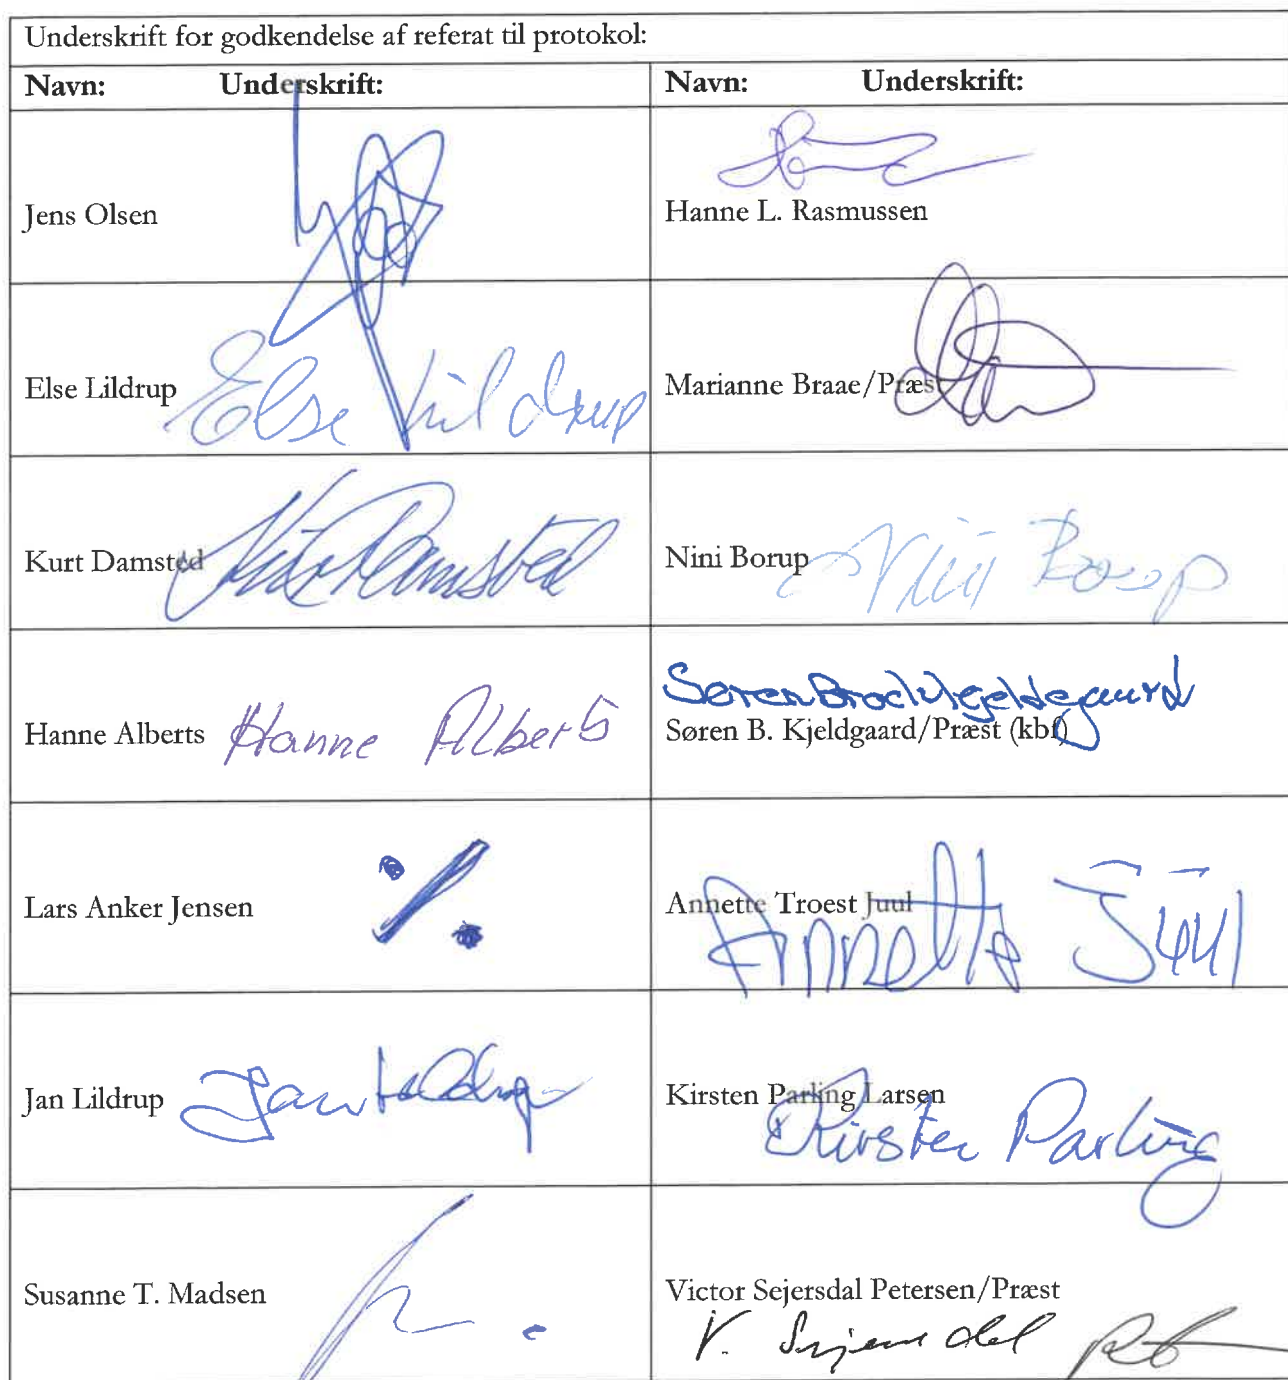 Underskrift for godkendelse af referat til protokol:
Navn: Underskrift: Navn: Underskrift:
Jens Olsen
Hanne L. Rasmussen
Else Lildrup Else Lildrup
Marianne Braae/Præst
Kurt Damsted Damsted
Nini Borup Nini Borup
Hanne Alberts Hanne Alberts
Søren Brock Kjeldegaard
Søren B. Kjeldgaard/Præst (kbf)
Lars Anker Jensen
Annette Troest Juul
Annette Juul
Jan Lildrup Jan Lildrup
Kirsten Parling Larsen
Kirsten Parling
Susanne T. Madsen
Victor Sejersdal Petersen/Præst
V. Sejersdal